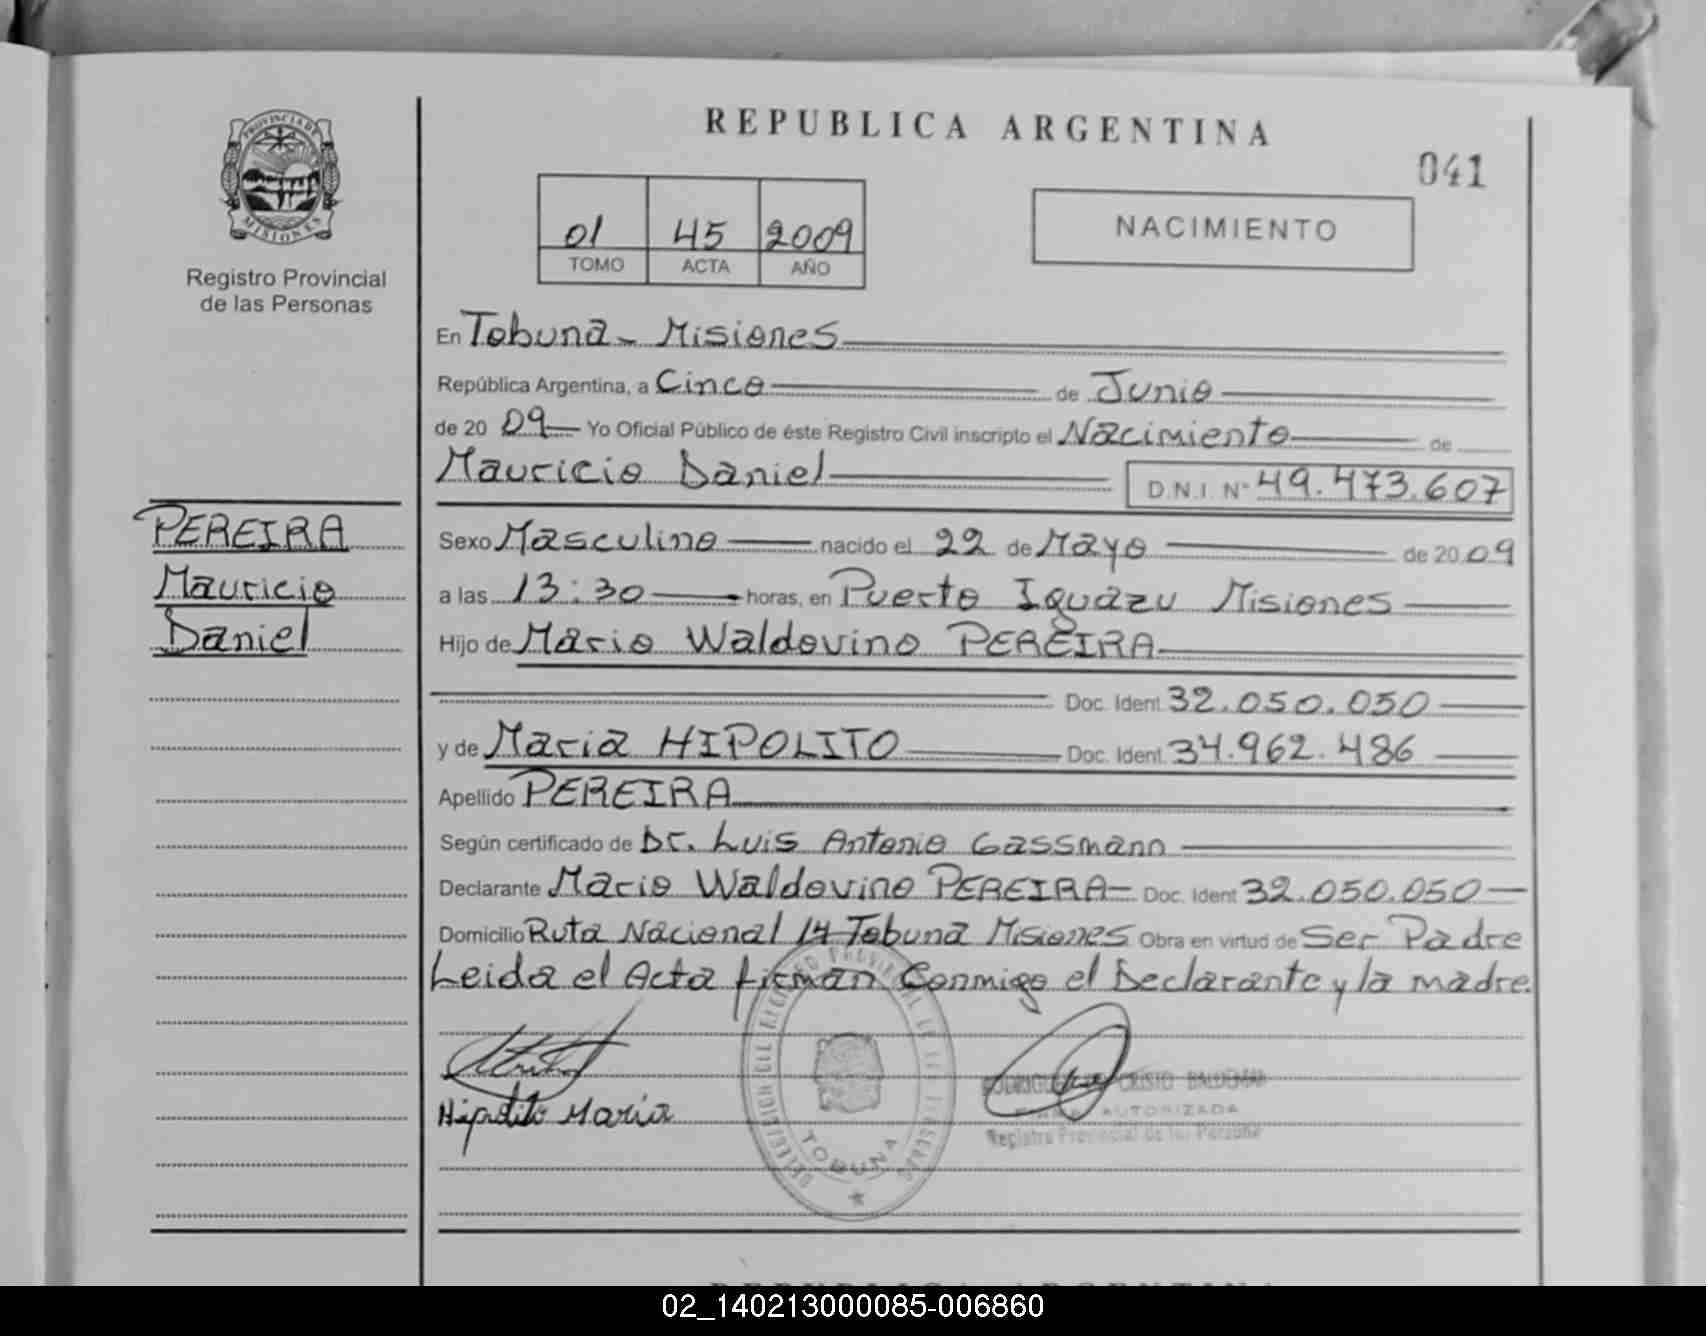 REPUBLICA ARGENTINA
041
PROVINCIA DE
MISIONES
Registro Provincial
de las Personas
01 45 2009
TOMO ACTA AÑO
NACIMIENTO
En Tobuna - Misiones
República Argentina, a Cinco de Junio
de 20 09 Yo Oficial Público de éste Registro Civil inscripto el Nacimiento de
Mauricio Daniel D.N.I. Nº 49.473.607
PEREIRA
Mauricio
Daniel
Sexo Masculino nacido el 22 de Mayo de 20 09
a las 13:30 horas, en Puerto Iguazu Misiones
Hijo de Mario Waldovino PEREIRA
Doc. Ident. 32.050.050
y de Maria HIPOLITO Doc. Ident. 34.962.486
Apellido PEREIRA
Según certificado de Dr. Luis Antonio Gassmann
Declarante Mario Waldovino PEREIRA Doc. Ident. 32.050.050
Domicilio Ruta Nacional 14 Tobuna Misiones Obra en virtud de Ser Padre
Leida el Acta firman Conmigo el Declarante y la madre.
Hipolito Maria
TOBUNA
CRISTO BALDEMAR
AUTORIZADA
Registro Provincial de las Personas
REPUBLICA ARGENTINA
02_140213000085-006860